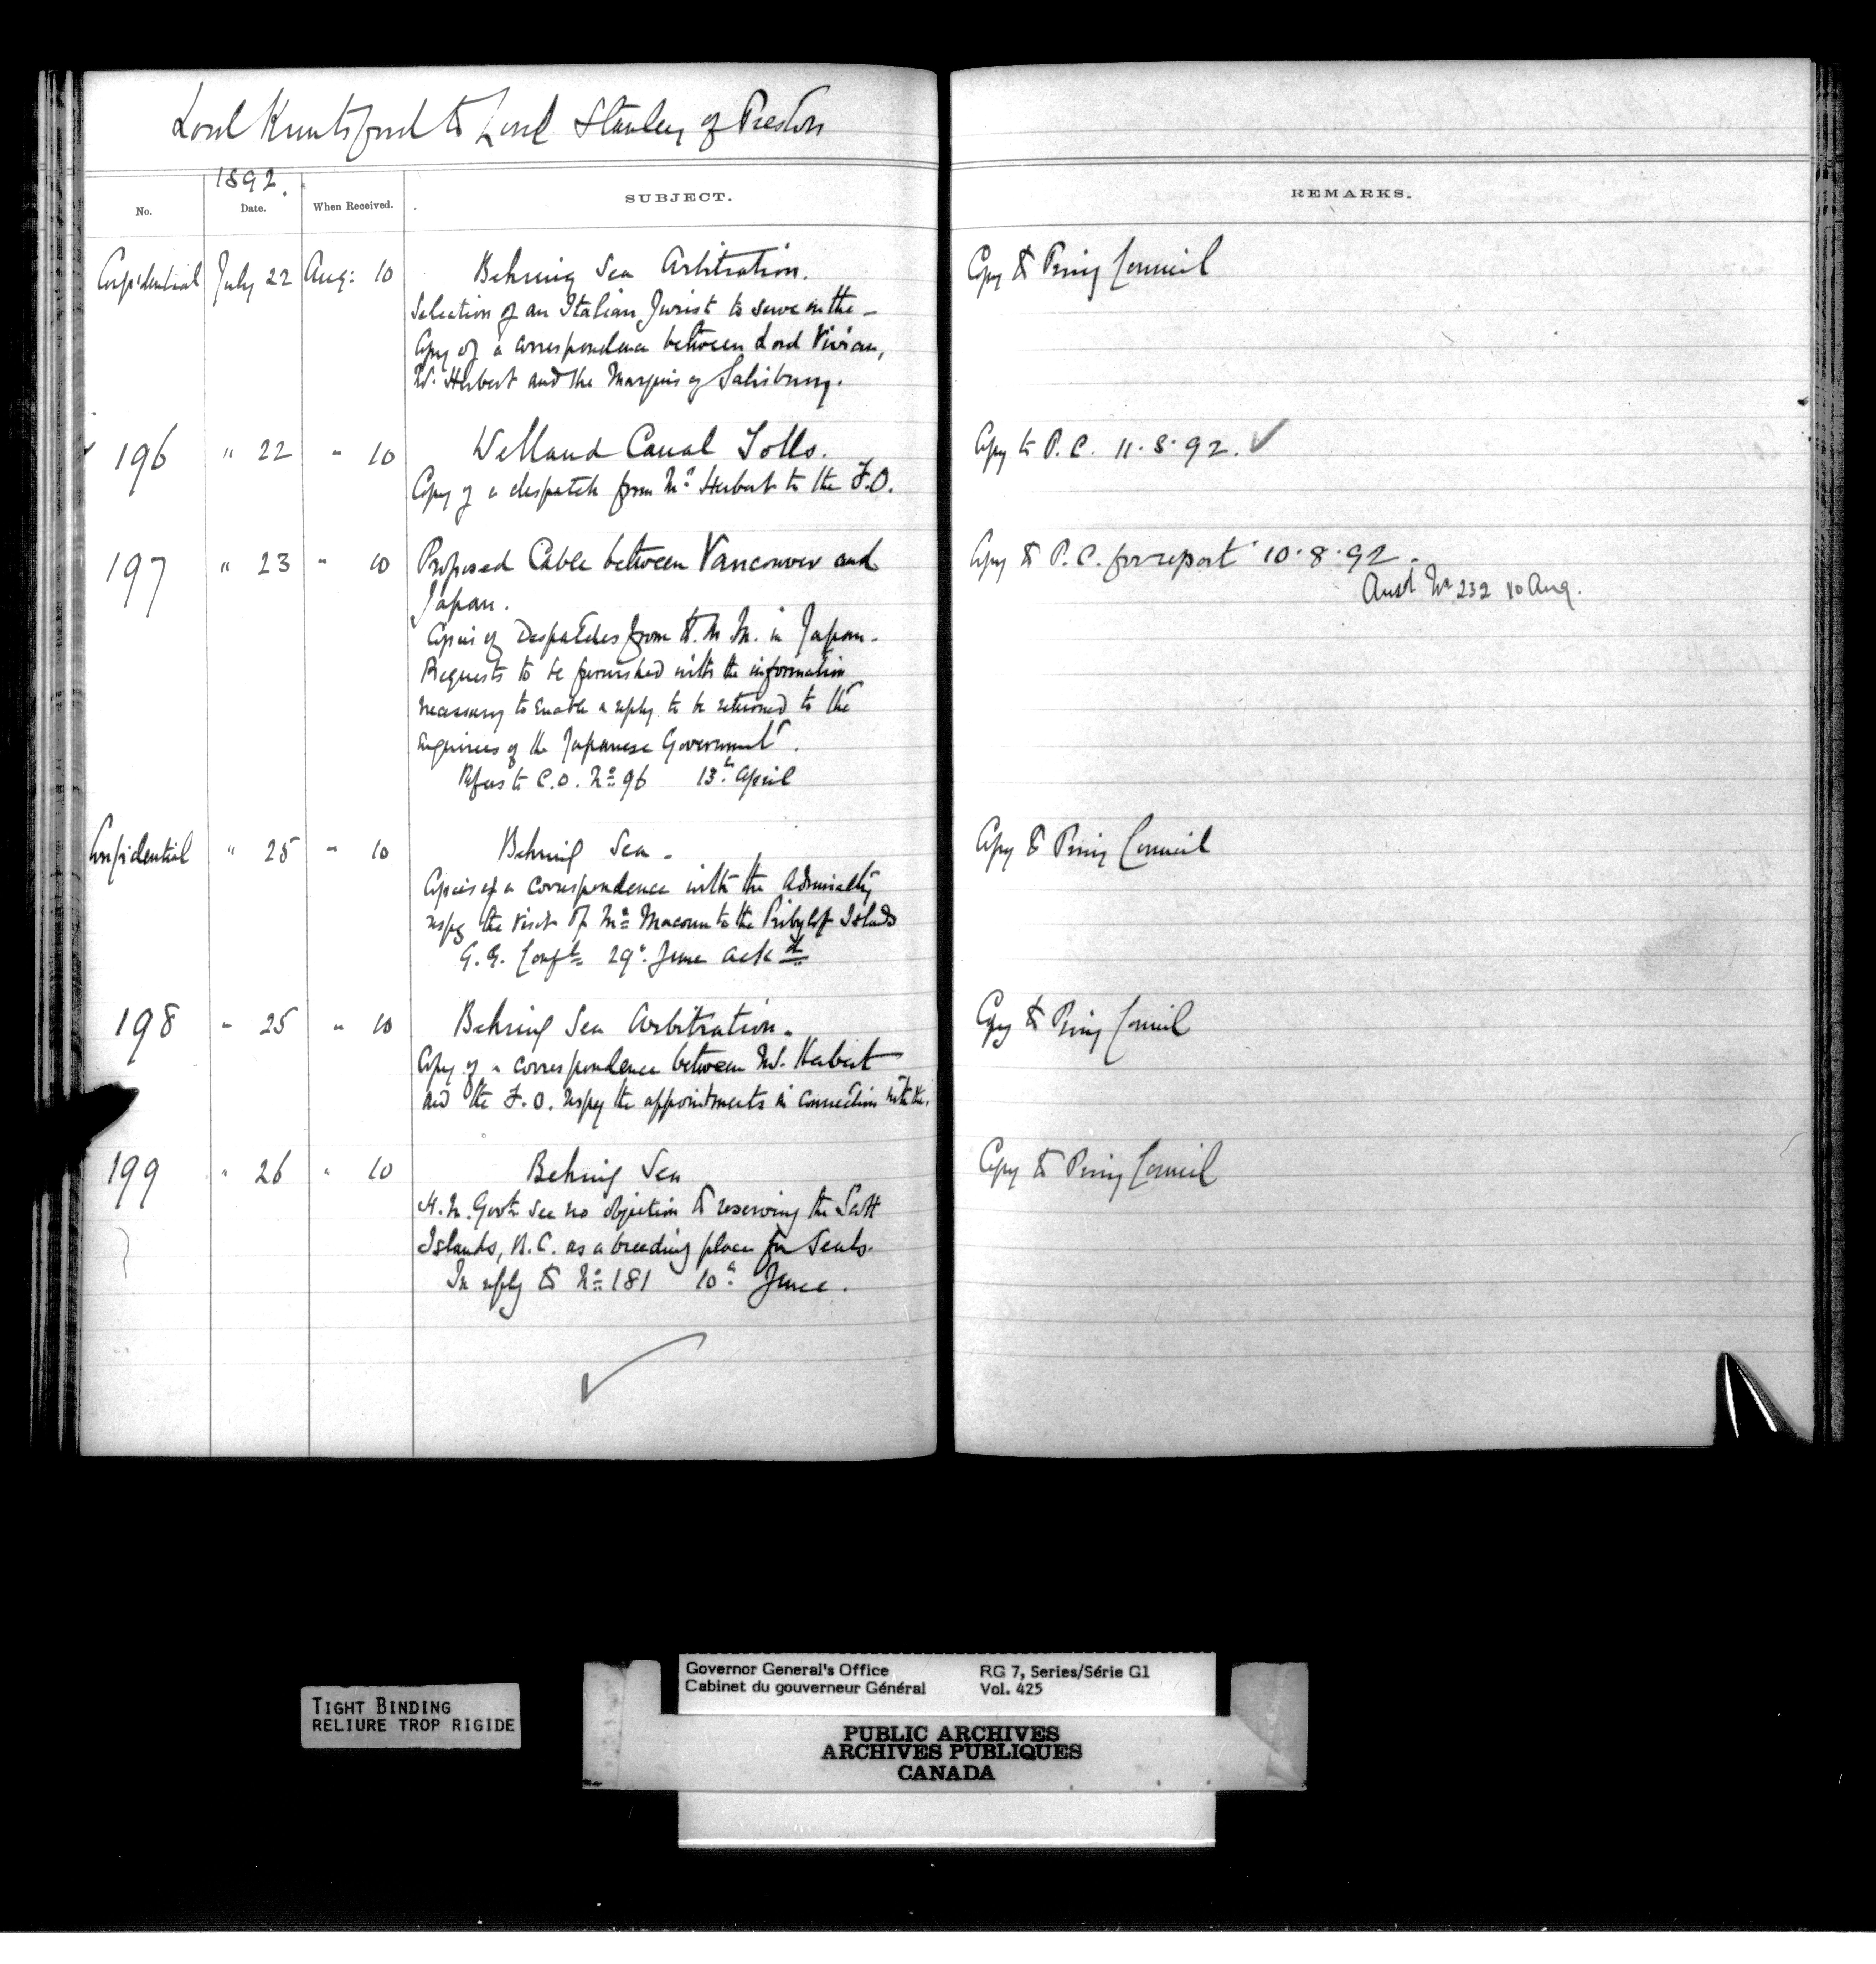 Lord Knutsford to Lord Stanley of Preston
1892.
No. Date. When Received. SUBJECT. REMARKS.
Confidential July 22 Aug: 10 Behring Sea Arbitration. Copy to Privy Council
Selection of an Italian Jurist to serve on the –
Copy of a correspondence between Lord Vivian,
Mr. Herbert and the Marquis of Salisbury.
196 " 22 " 10 Welland Canal Tolls. Copy to P.C. 11.8.92. ✓
Copy of a despatch from Mr. Herbert to the F.O.
197 " 23 " 10 Proposed Cable between Vancouver and Copy to P.C. for report 10.8.92.
Japan. Ansd No 232 10 Aug.
Copies of Despatches from H.M.M. in Japan.
Requests to be furnished with the information
necessary to enable a reply to be returned to the
enquiries of the Japanese Governmt.
Refers to C.O. No 96 13th April
Confidential " 25 " 10 Behring Sea. Copy to Privy Council
Copies of a correspondence with the Admiralty
respg the visit of Mr Macoun to the Pribylof Islands
G.G. Confl 29th June ackd
198 " 25 " 10 Behring Sea Arbitration. Copy to Privy Council
Copy of a correspondence between Mr. Herbert
and the F.O. respg the appointments in connection with the.
199 " 26 " 10 Behring Sea Copy to Privy Council
H.M. Govt. see no objection to reserving the Scott
Islands, B.C. as a breeding place for Seals.
In reply to No 181 10th June.
✓
TIGHT BINDING
RELIURE TROP RIGIDE
Governor General's Office RG 7, Series/Série G1
Cabinet du gouverneur Général Vol. 425
PUBLIC ARCHIVES
ARCHIVES PUBLIQUES
CANADA